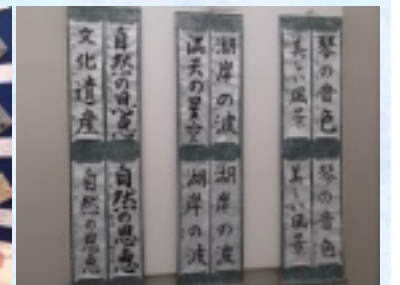 琴の音色
美しい風景
琴の音色
美しい風景
湖岸の波
満天の星空
湖岸の波
湖岸の波
自然の恩恵
文化遺産
自然の恩恵
自然の恩恵